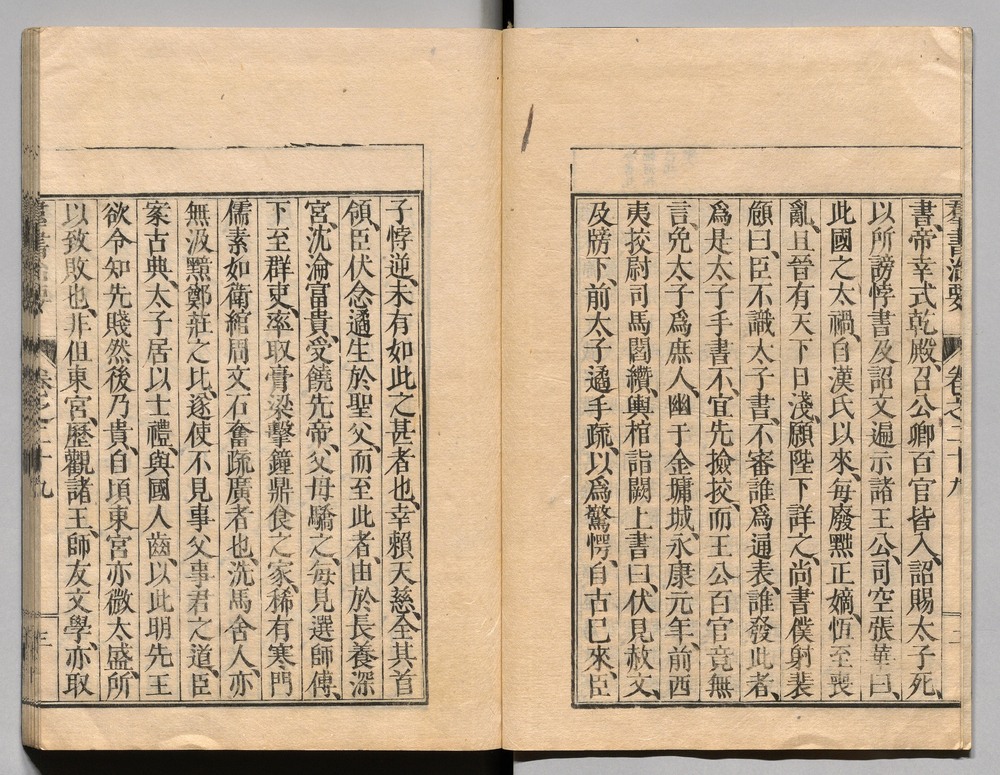 羣書治要 卷之二十九 二
書、帝幸式乾殿、召公卿百官皆入、詔賜太子死、
以所謗悖書及詔文遍示諸王公、司空張華曰、
此國之大禍、自漢氏以來、每廢黜正嫡、恆至喪
亂、且晉有天下日淺、願陛下詳之、尚書僕射裴
頠曰、臣不識太子書、不審誰爲通表、誰發此者、
爲是太子手書不、宜先撿挍、而王公百官竟無
言、免太子爲庶人、幽于金墉城、永康元年、前西
夷挍尉司馬閻纘、輿棺詣闕上書曰、伏見赦文、
及牓下、前太子遹手疏、以爲驚愕、自古已來、臣
子悖逆、未有如此之甚者也、幸賴天慈、全其首
領、臣伏念遹生於聖父、而至此者、由於長養深
宮、沈淪富貴、受饒先帝、父母驕之、每見選師傅、
下至群吏、率取膏粱擊鐘鼎食之家、稀有寒門
儒素如衛綰周文石奮疏廣者也、洗馬舍人、亦
無汲黯鄭莊之比、遂使不見事父事君之道、臣
案古典、太子居以士禮、與國人齒、以此明先王
欲令知先賤然後乃貴、自頃東宮亦微太盛、所
以致敗也、非但東宮、歷觀諸王、師友文學、亦取
羣書治要 卷之二十九 三